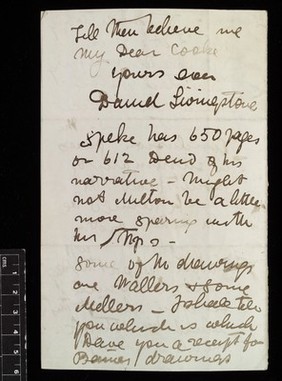 Till then believe me
My Dear Cooke
yours ever
David Livingstone
Speke has 650 pages
or 612 Demi of his
narrative - Might
not Milton be a little
more sparing with
his
Some of the drawings
are Wallers & some
Mellers - I shall tell
you which is which
Have you a receipt for
Baines' drawings
CMS
1
2
3
4
5
6